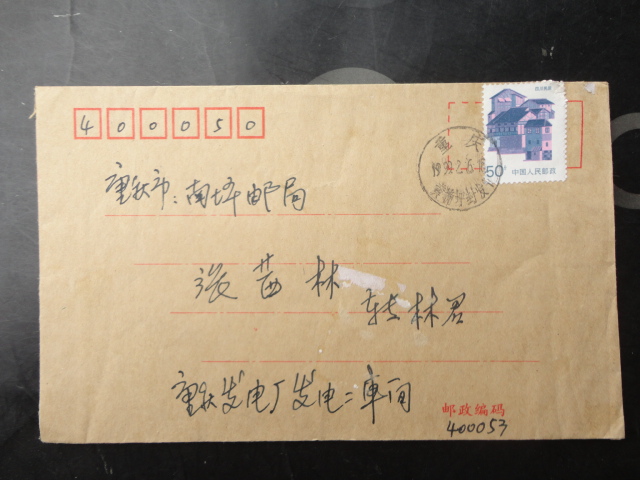 400050
四川民居
50分
中国人民邮政
重庆
重庆市:南坪邮局
张茜林
转林君
重庆发电厂发电二车间
邮政编码
400053